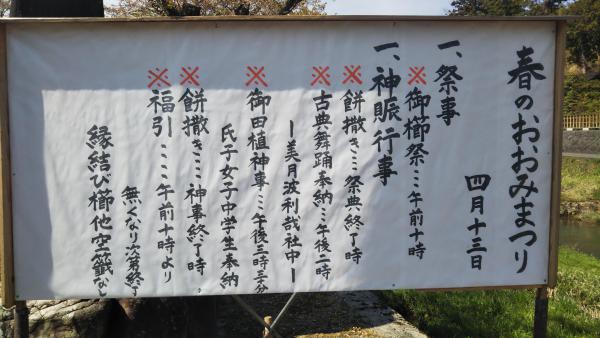 春のおおみまつり
四月十三日
一、祭事
※御櫛祭…午前十時
一、神賑行事
※餅撒き…祭典終了時
※古典舞踊奉納…午後二時
ー美月波利哉社中ー
※御田植神事…午後三時三十分
氏子女子中学生奉納
※餅撒き…神事終了時
※福引…午前十時より
無くなり次第終了
縁結び櫛他空籤なし